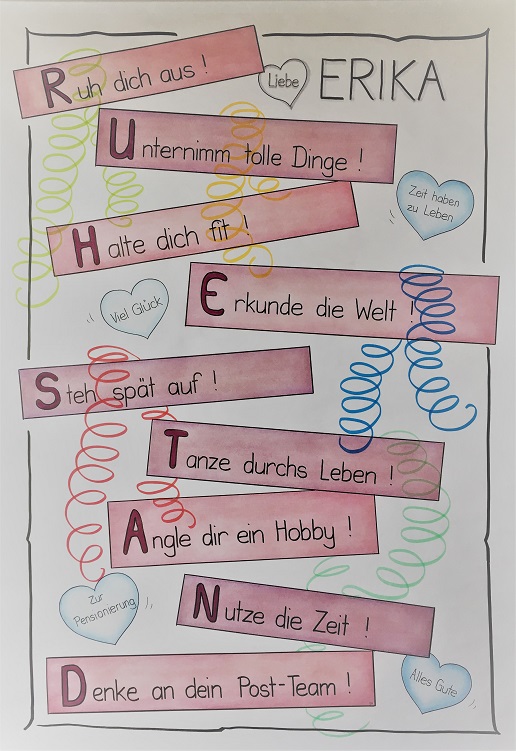 Ruh dich aus !
Liebe
ERIKA
Unternimm tolle Dinge !
Zeit haben
zu Leben
Halte dich fit !
Erkunde die Welt !
Viel Glück
Steh spät auf !
Tanze durchs Leben !
Angle dir ein Hobby !
Zur
Pensionierung
Nutze die Zeit !
Denke an dein Post-Team !
Alles Gute